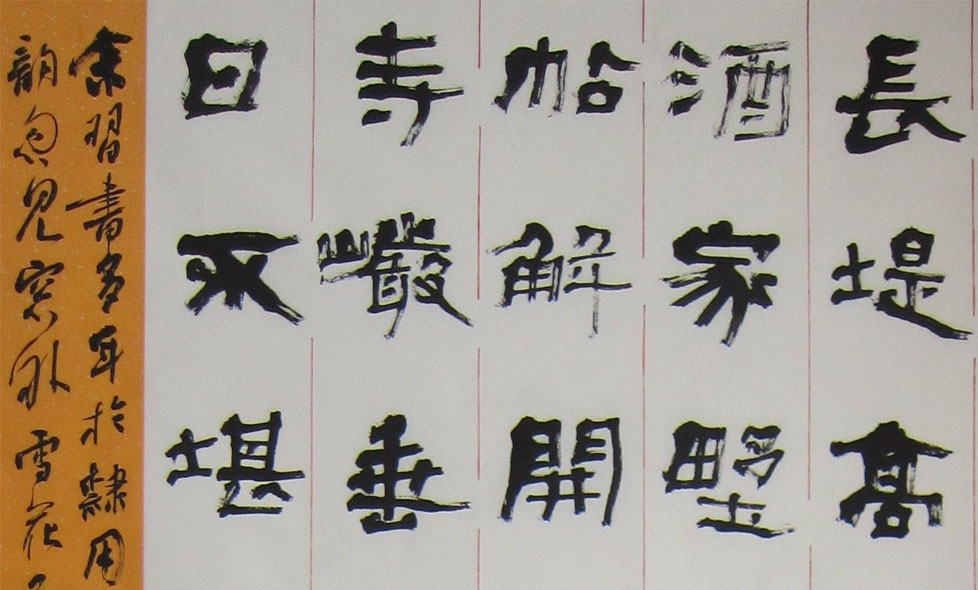 長堤高
酒家野
解開
寺巖垂
日不堪
余習書多年於隸用
韻忽見窓外雪花